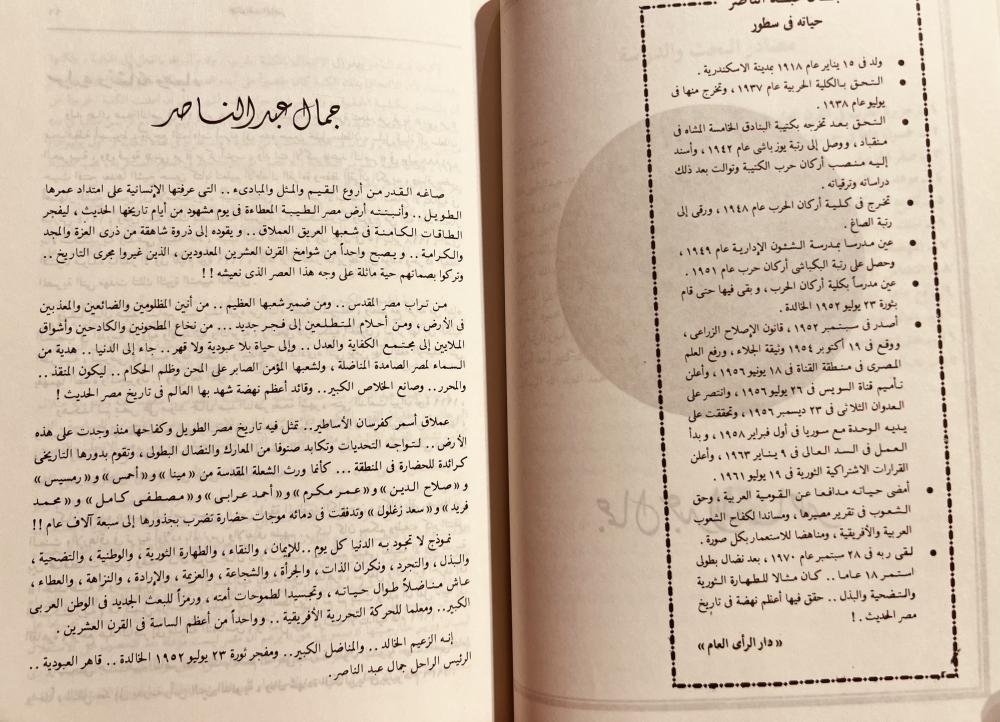 جمال عبد الناصر
حياته فى سطور
ولد فى ١٥ يناير عام ١٩١٨ بمدينة الاسكندرية .
التحق بالكلية الحربية عام ١٩٣٧ ، وتخرج منها فى
يوليو عام ١٩٣٨ .
التحق بعد تخرجه بكتيبة البنادق الخامسة المشاه فى
منقباد ، ووصل إلى رتبة يوزباشى عام ١٩٤٢ ، وأسند
إليه منصب أركان حرب الكتيبة وتوالت بعد ذلك
دراساته وترقياته .
تخرج فى كلية أركان الحرب عام ١٩٤٨ ، ورقى إلى
رتبة الصاغ .
عين مدرسا بمدرسة الشئون الإدارية عام ١٩٤٩ ،
وحصل على رتبة البكباشى أركان حرب عام ١٩٥١ .
عين مدرساً بكلية أركان الحرب ، وبقى فيها حتى قام
بثورة ٢٣ يوليو ١٩٥٢ الخالدة .
أصدر فى سبتمبر ١٩٥٢ ، قانون الإصلاح الزراعى ،
ووقع فى ١٩ أكتوبر ١٩٥٤ وثيقة الجلاء ، ورفع العلم
المصرى فى منطقة القناة فى ١٨ يونيو ١٩٥٦ ، وأعلن
تأميم قناة السويس فى ٢٦ يوليو ١٩٥٦ ، وانتصر على
العدوان الثلاثى فى ٢٣ ديسمبر ١٩٥٦ ، وتحققت على
يديه الوحدة مع سوريا فى أول فبراير ١٩٥٨ ، وبدأ
العمل فى السد العالى فى ٩ يناير ١٩٦٣ ، وأعلن
القرارات الاشتراكية الثورية فى ١٩ يوليو ١٩٦١ .
أمضى حياته مدافعا عن القومية العربية ، وحق
الشعوب فى تقرير مصيرها ، ومساندا لكفاح الشعوب
العربية والأفريقية ، ومناهضا للاستعمار بكل صورة .
لقى ربه فى ٢٨ سبتمبر عام ١٩٧٠ ، بعد نضال بطولى
استمر ١٨ عاما .. كان مثالا للطهارة الثورية
والتضحية والبذل .. حقق فيها أعظم نهضة فى تاريخ
مصر الحديث . !
« دار الرأى العام »
جمال عبد الناصر
صاغه القدر من أروع القيم والمثل والمبادىء .. التى عرفتها الإنسانية على امتداد عمرها
الطويل .. وأنبتته أرض مصر الطيبة المعطاءة فى يوم مشهود من أيام تاريخها الحديث ، ليفجر
الطاقات الكامنة فى شعبها العريق العملاق .. ويقوده إلى ذروة شاهقة من ذرى العزة والمجد
والكرامة .. ويصبح واحداً من شوامخ القرن العشرين المعدودين ، الذين غيروا مجرى التاريخ ..
وتركوا بصماتهم حية ماثلة على وجه هذا العصر الذى نعيشه ! !
من تراب مصر المقدس .. ومن ضمير شعبها العظيم .. من أنين المظلومين والضائعين والمعذبين
فى الأرض ، ومن أحلام المتطلعين إلى فجر جديد ... من نخاع المطحونين والكادحين وأشواق
الملايين إلى مجتمع الكفاية والعدل .. وإلى حياة بلا عبودية ولا قهر .. جاء إلى الدنيا .. هدية من
السماء لمصر الصامدة المناضلة ، ولشعبها المؤمن الصابر على المحن وظلم الحكام .. ليكون المنقذ ..
والمحرر .. وصانع الخلاص الكبير .. وقائد أعظم نهضة شهد بها العالم فى تاريخ مصر الحديث !
عملاق أسمر كفرسان الأساطير .. تمثل فيه تاريخ مصر الطويل وكفاحها منذ وجدت على هذه
الأرض .. لتواجه التحديات وتكابد صنوفا من المعارك والنضال البطولى ، وتقوم بدورها التاريخى
كرائدة للحضارة فى المنطقة ... كأنما ورث الشعلة المقدسة من « مينا » و « أحمس » و « رمسيس »
و « صلاح الدين » و « عمر مكرم » و « أحمد عرابى » و « مصطفى كامل » و « محمد
فريد » و « سعد زغلول » وتدفقت فى دمائه موجات حضارة تضرب بجذورها إلى سبعة آلاف عام !!
نموذج لا تجود به الدنيا كل يوم .. للإيمان ، والنقاء ، والطهارة الثورية ، والوطنية ، والتضحية ،
والبذل ، والتجرد ، ونكران الذات ، والجرأة ، والشجاعة ، والعزيمة ، والإرادة ، والنزاهة ، والعطاء ،
عاش مناضلاً طوال حياته ، وتجسيدا لطموحات أمته ، ورمزاً للبعث الجديد فى الوطن العربى
الكبير .. ومعلما للحركة التحررية الأفريقية .. وواحداً من أعظم الساسة فى القرن العشرين .
إنه الزعيم الخالد .. والمناضل الكبير .. ومفجر ثورة ٢٣ يوليو ١٩٥٢ الخالدة .. قاهر العبودية ..
الرئيس الراحل جمال عبد الناصر .